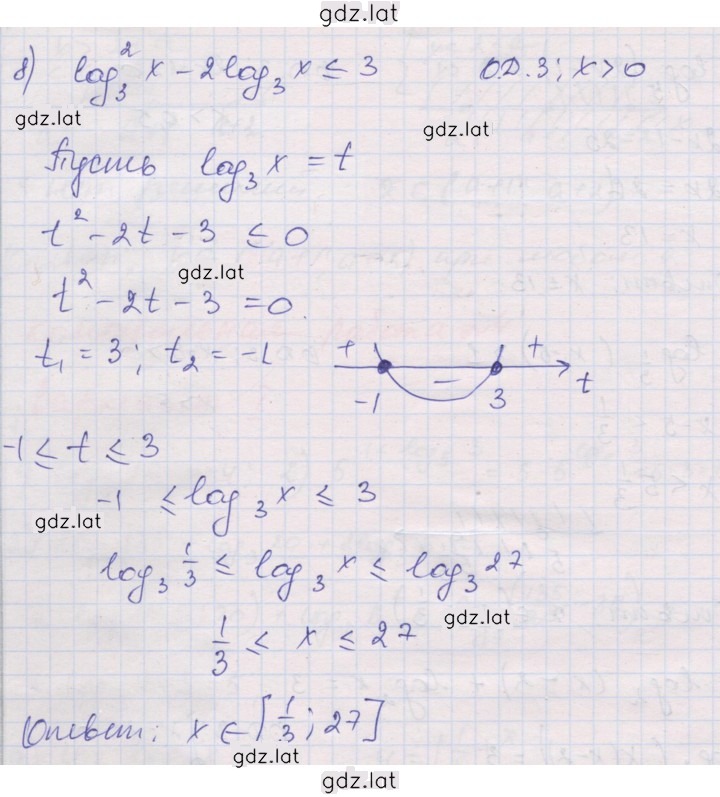 gdz.lat
б) log₃² x – 2log₃ x ≤ 3 О.Д.З; x > 0
gdz.lat gdz.lat
Пусть log₃ x = t
t² – 2t – 3 ≤ 0
gdz.lat
t² – 2t – 3 = 0.
t₁ = 3; t₂ = –1 + – +
–1 3 t
–1 ≤ t ≤ 3
–1 ≤ log₃ x ≤ 3
gdz.lat
log₃ 1/3 ≤ log₃ x ≤ log₃ 27
gdz.lat
1/3 ≤ x ≤ 27
Ответ: x ∈ [1/3; 27]
gdz.lat
gdz.lat